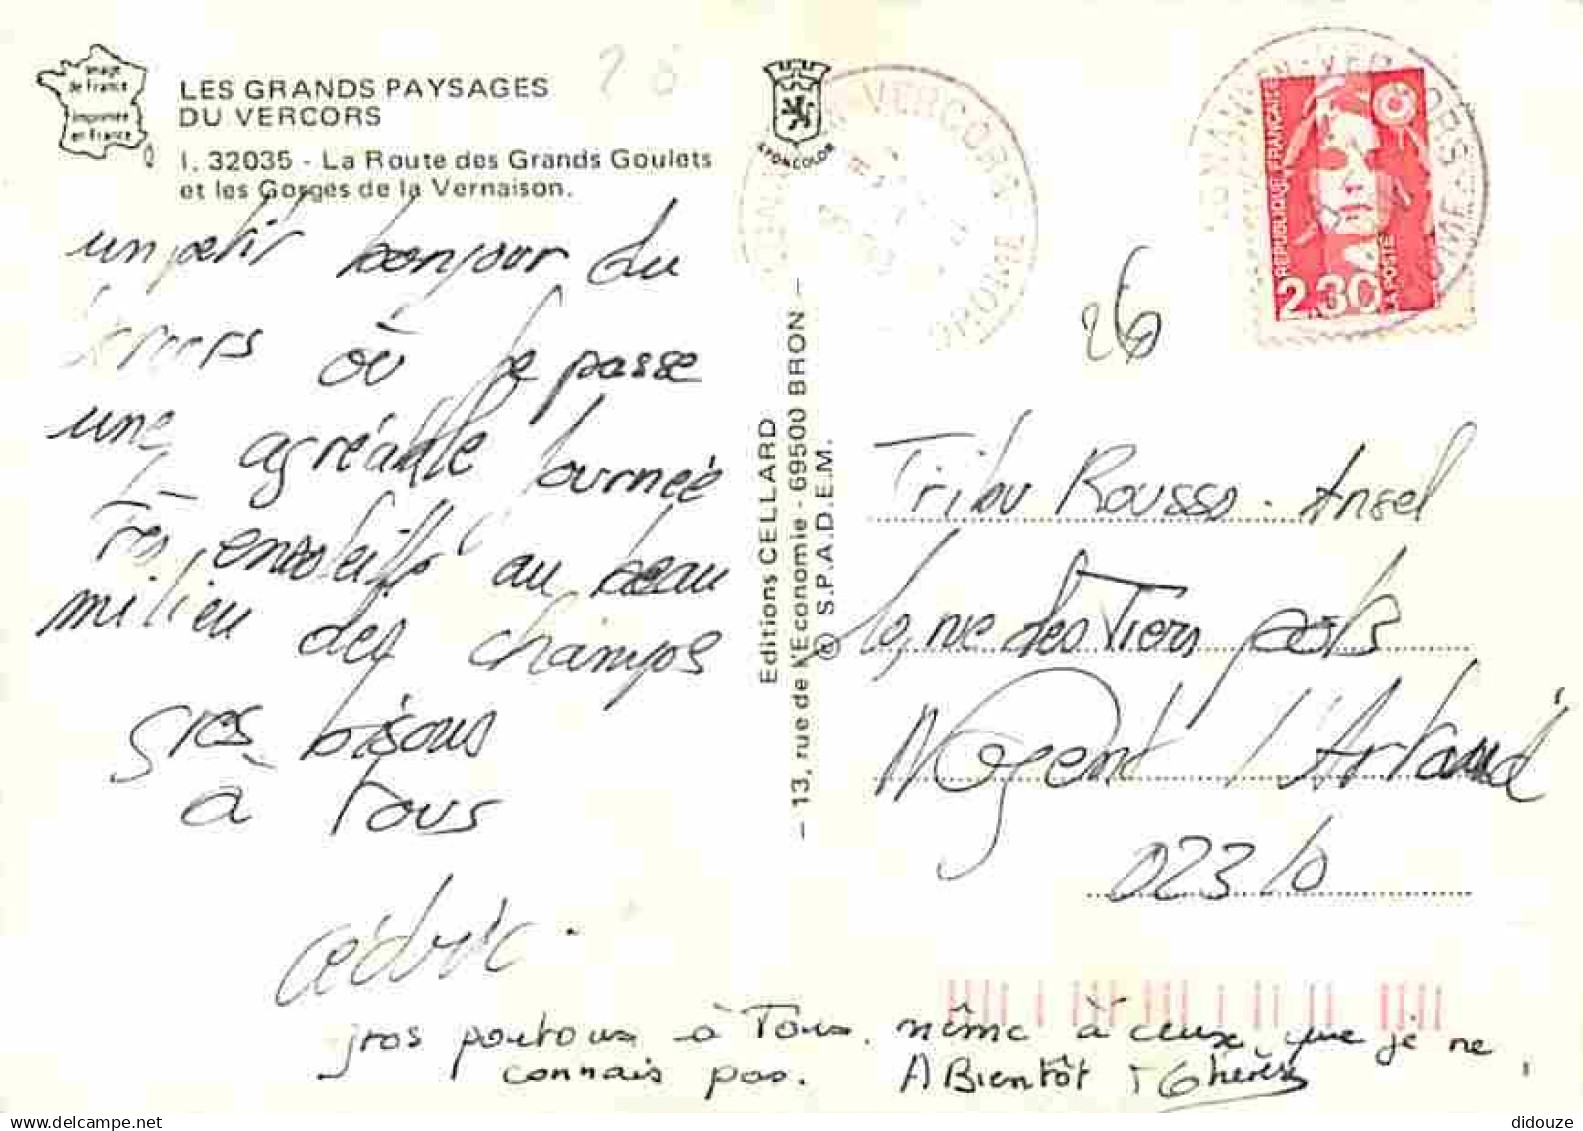 Image
de France
Imprimée
en France
LES GRANDS PAYSAGES
DU VERCORS
I. 32035 - La Route des Grands Goulets
et les Gorges de la Vernaison.
LYONCOLOR
un petit bonjour du
Vercors où je passe
une agréable journée
Très ensoleillé au beau
milieu des champs
gros bisous
à Tous
Cédric.
gros poutous à Tous. même à ceux que je ne
connais pas. A Bientôt
Editions CELLARD
- 13, rue de l'Economie - 69500 BRON -
© S.P.A.D.E.M.
EN-VERCORS
DROME
REPUBLIQUE FRANÇAISE
2,30
LA POSTE
26
Tribu Rousso. Ansel
rue des Tiers pots
Nogent l'Artaud
02310
didouze